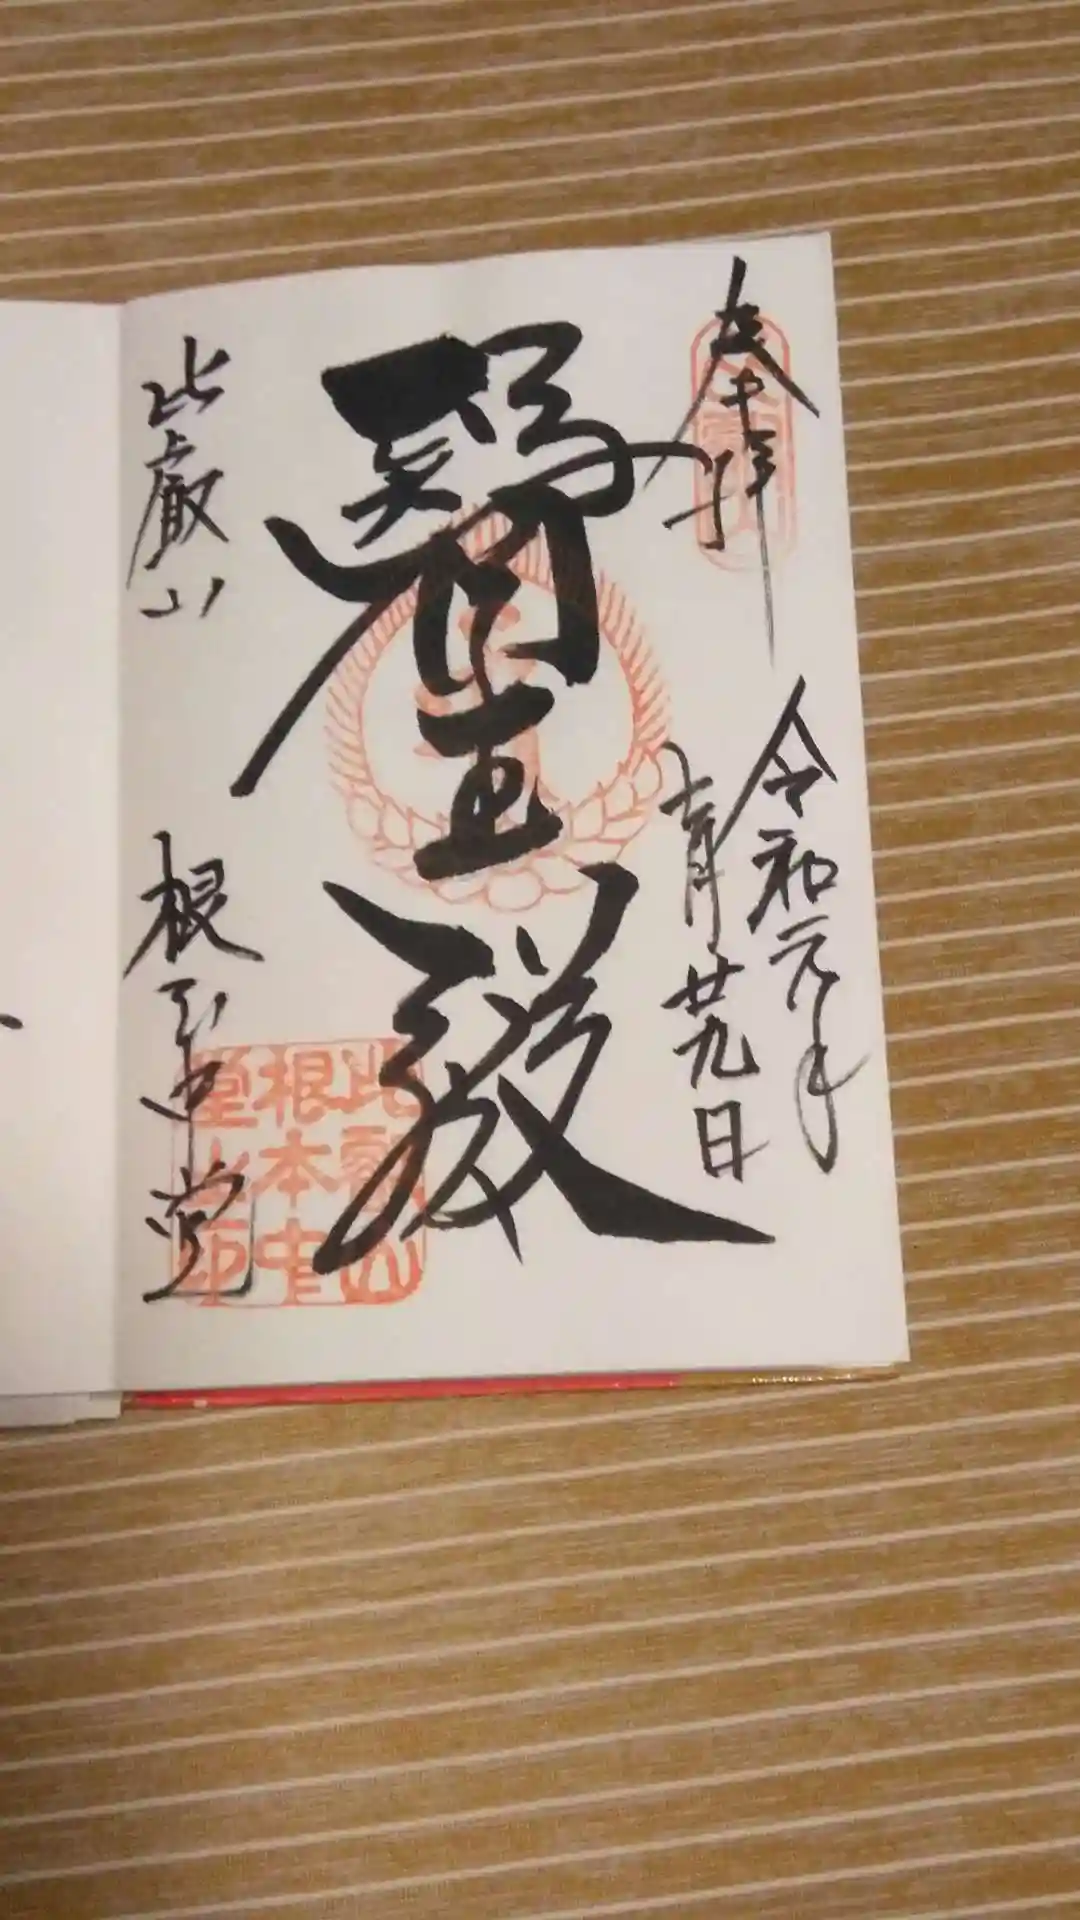 奉拝
令和元年
月廿九日
醫王殿
比叡山
根本中堂
比叡山
根本中
堂之印